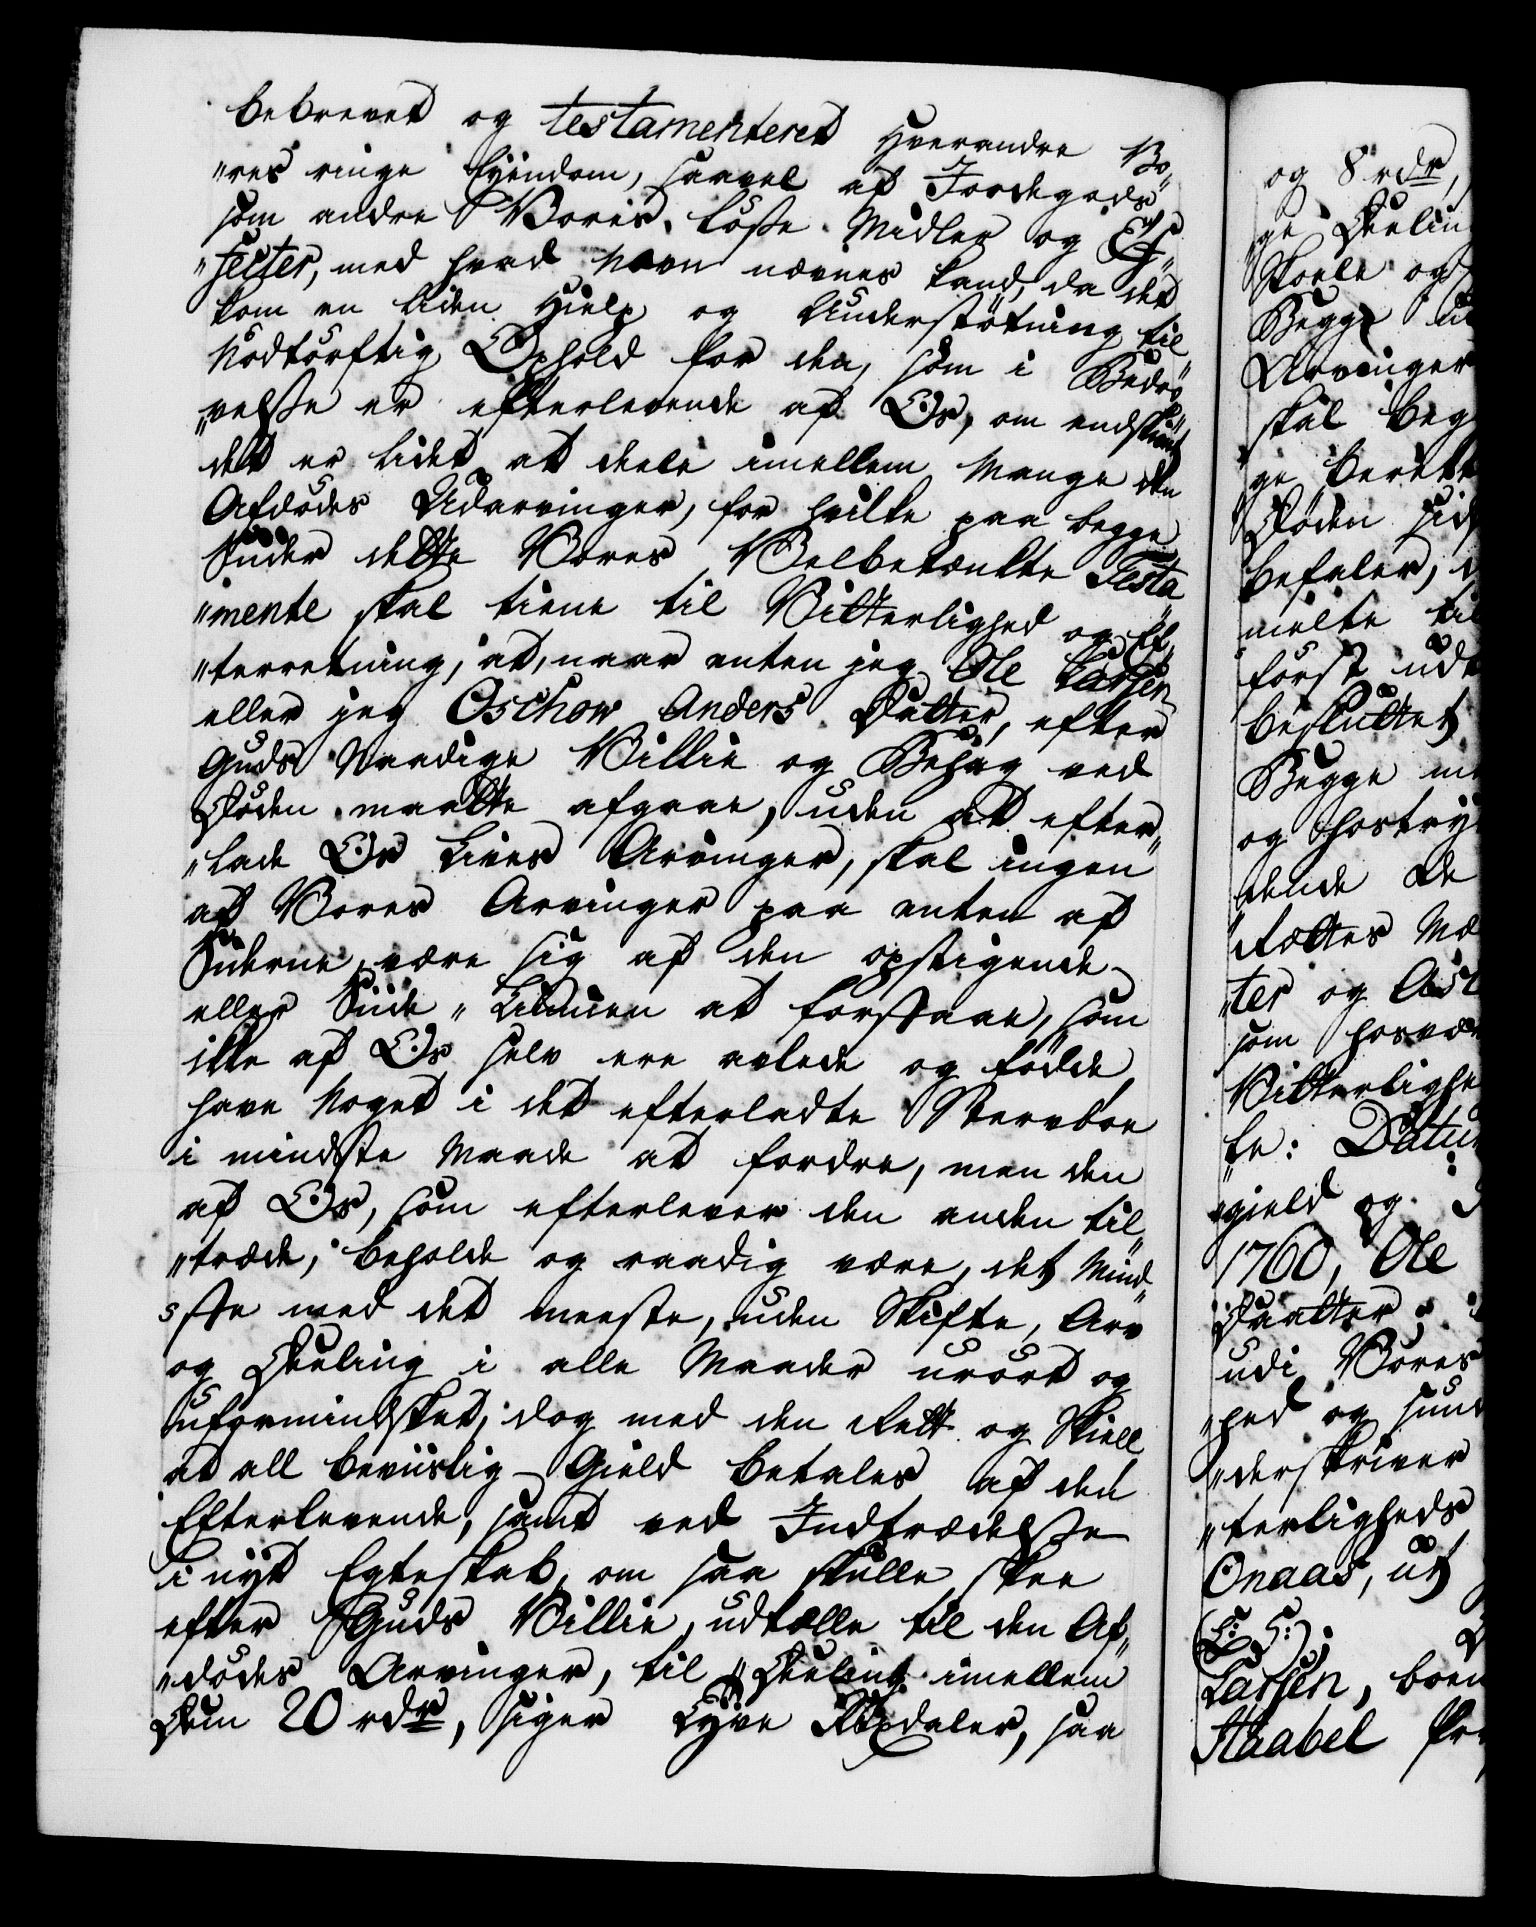 bebrevet og testamenteret hverandre Vo„
„res ringe Eyendom, saavel af Jordegods
som andre Voris Løsse Midler og Ef„
„fecter, med hvad Navn nævnes kand, da det
kom en liden Hielp og Understøtning til
Nødtørftig Ophold for den, som i Bedrø„
„velsse er efterlevende af Os, om endskiønt
det er lidet at deele imellem Mange den
Afdødes Udarvinger, for hvilke paa begge
Siider dette Vores Velbetænkte Testa„
„mente skal tiene til Vitterlighed og Ef„
„terretning, at, naar enten jeg Ole Larsen
eller jeg Oschow Anders Datter, efter
Guds Naadige Villie og Behag ved
Døden maatte afgaae, uden at efter„
„lade Os Lives Arvinger, skal ingen
af Vores Arvinger paa enten af
Siderne, være sig af den opstigende
eller Siide „ Linien at forstaae, som
ikke af Os selv ere avlede og fødde,
have Noget i det efterladte Sterboe
i mindste Maade at fordre, men den
af Os, som efterlever den anden til„
„træde, beholde og raadig være, det Mind„
„ste med det meeste, uden Skifte, Arv
og Deeling i alle Maader urørt og
uformindsket, dog med den Rett og Skiell
at all beviislig Gield betales af den
Efterlevende, samt ved Indtrædelsse
i nyt Egteskab, om saa skulle skee
efter Guds Villie, udtælle til den Af„
„dødes Arvinger, til Deeling imellem
Dem 20 rdr, siger Tyve Rixdaler, saa
og 8 rdr,
ge Deelin
Skoele og
Begge
Arvinger
skal beg
ge berett
Døden
befaler,
melte til
først udt
besluttet
Begge
og
tende De
Rættes
„ter og
som hosvæ
Vitterlighe
fe: Datu
gield og
1760, Ole
Daatter
udi Vores
„hed og
„derskriver
„terligheds
Onaas, ut
(L: S:)
Larsen, boen
Haabel